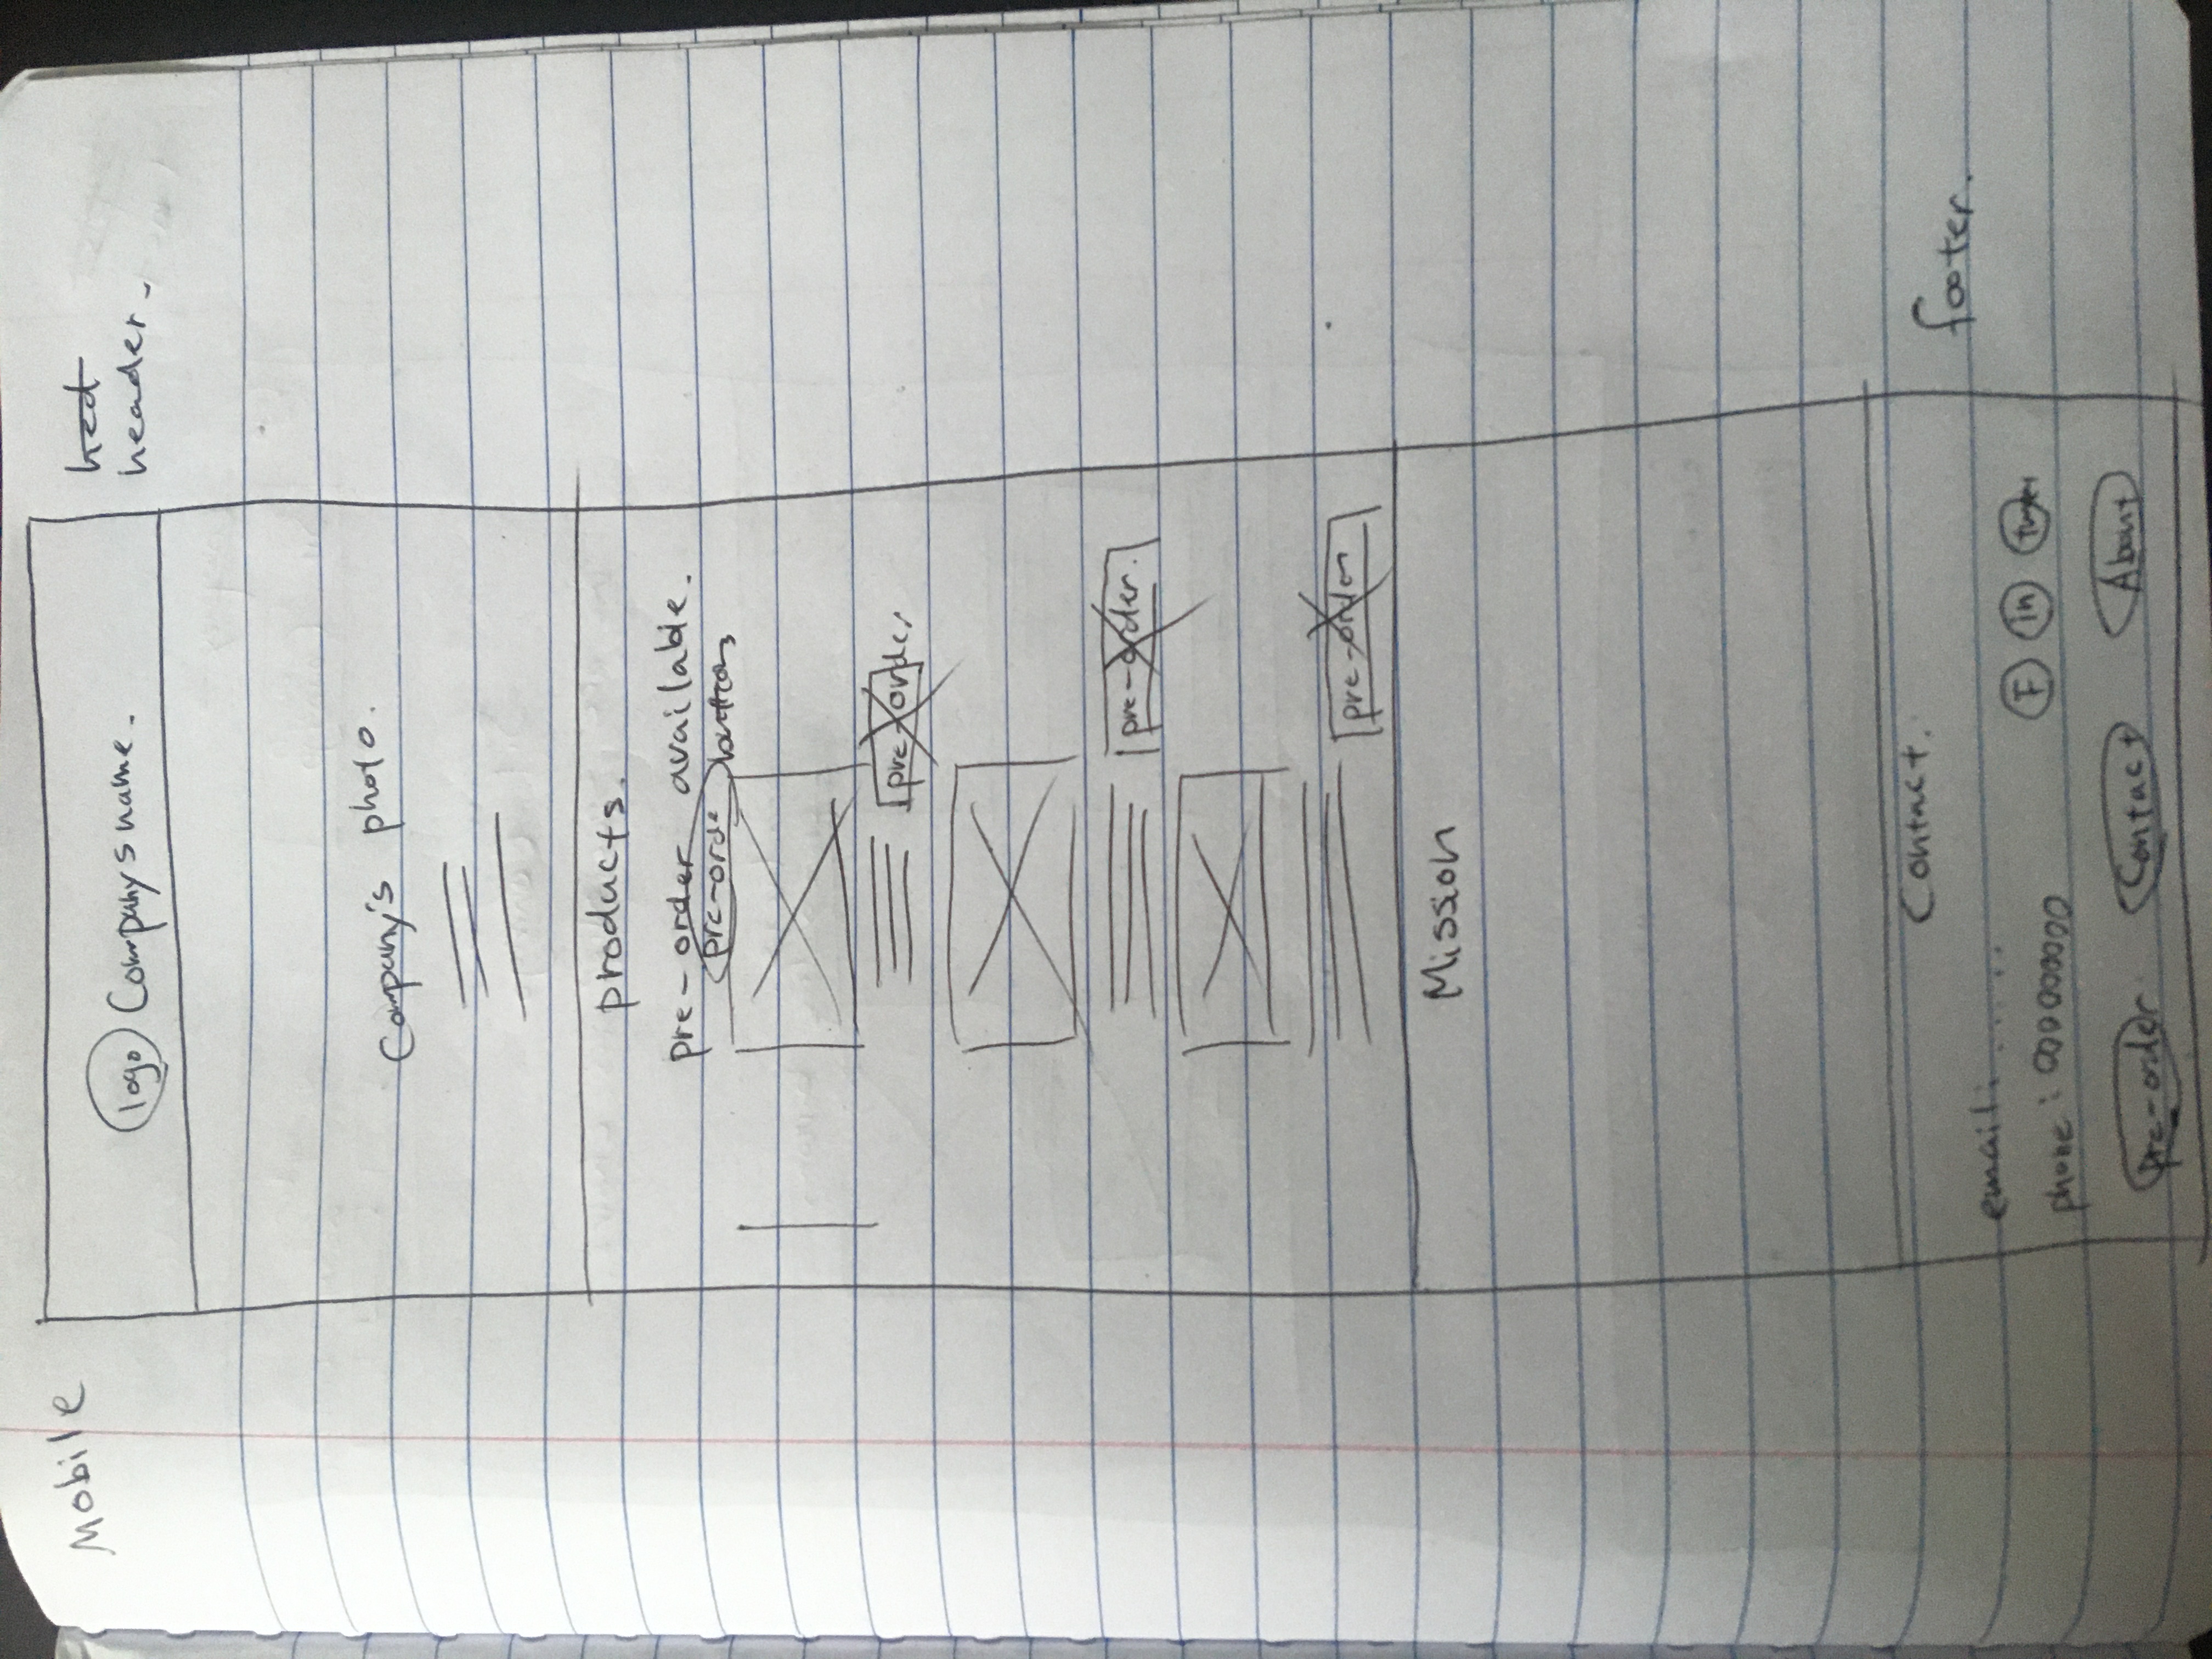 Mobile
hed
header.
logo Companys name.
Company's photo.
products.
pre-order available.
pre-orde buttons
pre-order
pre-order.
pre-order
Mission
Contact.
footer.
email: . . . . .
phone: 000000000
F in
pre-order Contact About